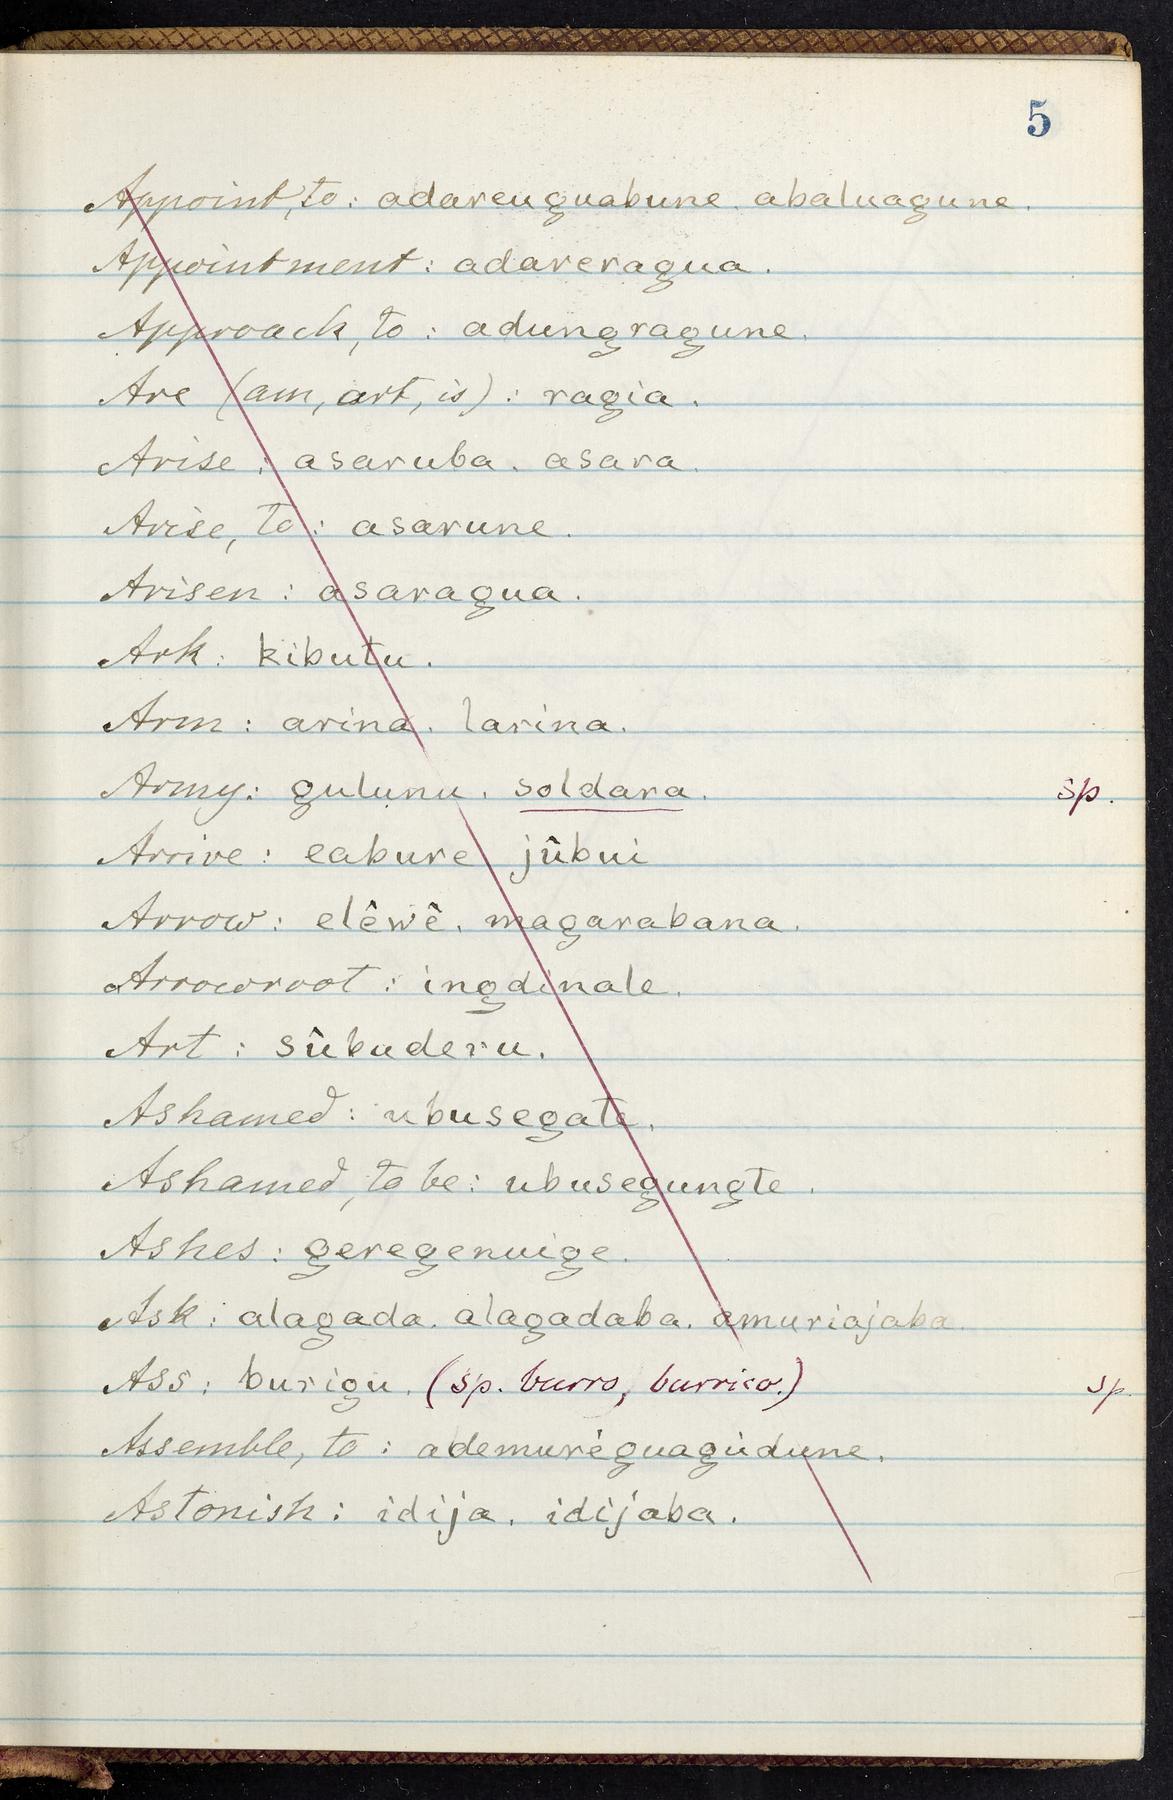 5
Appoint, to: adareuguabune. abaluagune.
Appointment: adareragua.
Approach, to: adungragune.
Are (am, art, is): ragia.
Arise: asaruba. asara.
Arise, to: asarune.
Arisen: asaragua.
Ark: kibutu.
Arm: arina. larina.
Army: gulunu. soldara. sp.
Arrive: eabure jûbui
Arrow: elêwê. magarabana.
Arrowroot: ingdinale.
Art: sûbuderu.
Ashamed: ubusegate.
Ashamed, to be: ubusegungte.
Ashes: geregenuige.
Ask: alagada. alagadaba. amuriajaba.
Ass: burigu. (sp. burro, burrico.) sp.
Assemble, to: ademuréguagùdune.
Astonish: idija. idijaba.